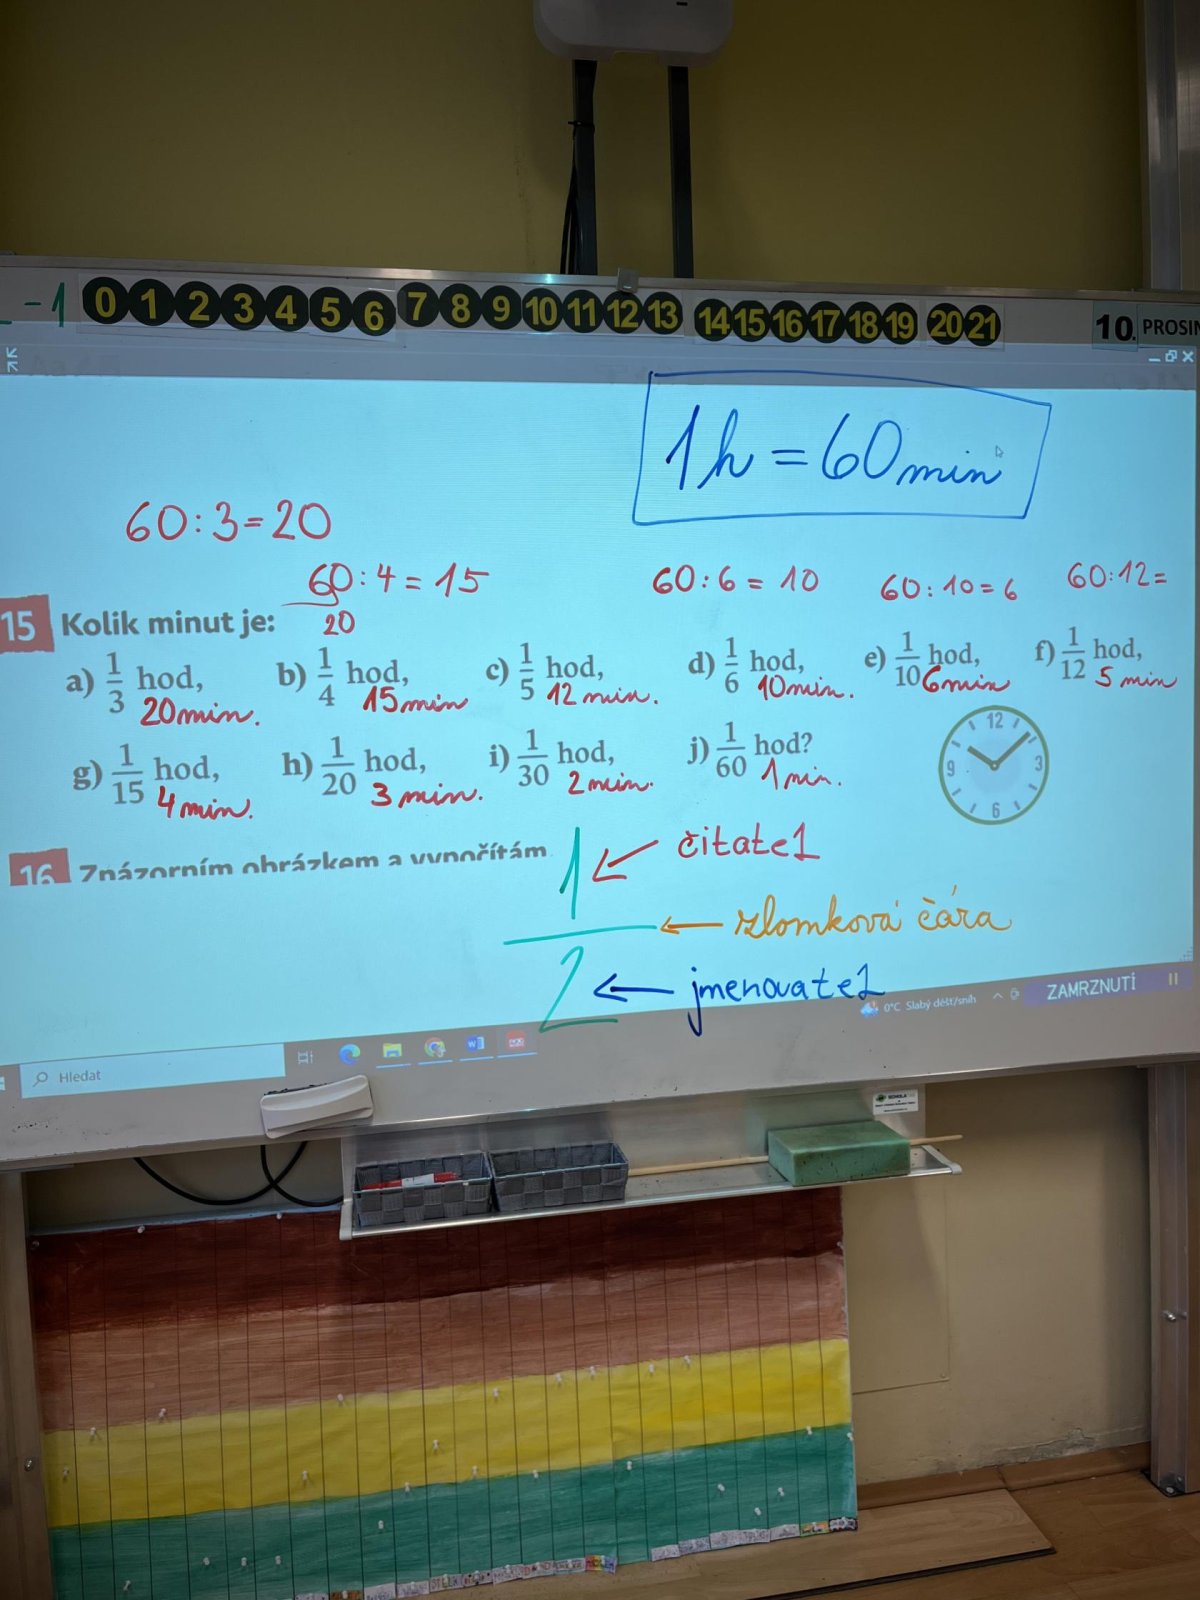 -1 0 1 2 3 4 5 6 7 8 9 10 11 12 13 14 15 16 17 18 19 20 21 10. PROSIN
1h = 60min
60:3=20
60:4=15 60:6=10 60:10=6 60:12=
20
15 Kolik minut je:
a) 1/3 hod, b) 1/4 hod, c) 1/5 hod, d) 1/6 hod, e) 1/10 hod, f) 1/12 hod,
20min. 15min 12min. 10min. 6min 5 min
g) 1/15 hod, h) 1/20 hod, i) 1/30 hod, j) 1/60 hod?
4min. 3min. 2min. 1min.
12
9 3
6
16 Znázorním obrázkem a vypočítám
1 čitatel
zlomková čára
2 jmenovatel
0°C Slabý déšť/sníh ZAMRZNUTÍ
Hledat